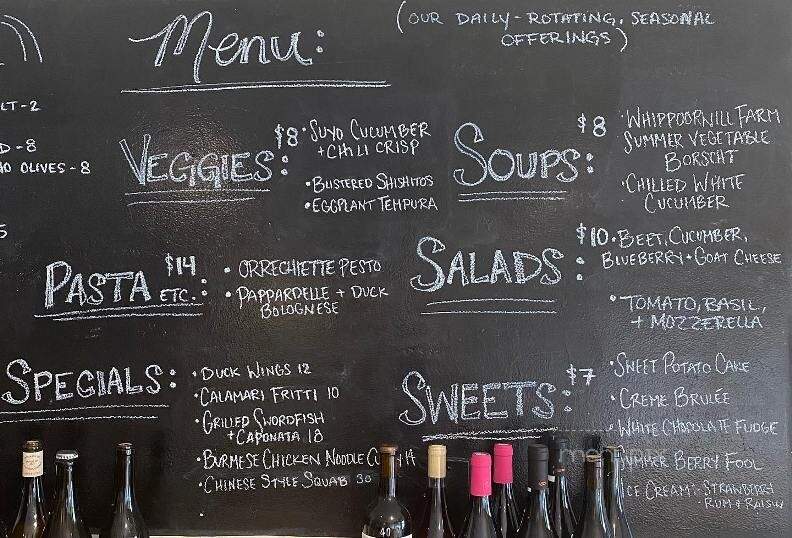 Menu:
(OUR DAILY-ROTATING, SEASONAL
OFFERINGS)
LT-2
D-8
OLIVES-8
5
VEGGIES:
$8
•SUYO CUCUMBER
+CHILI CRISP
•BLISTERED SHISHITOS
•EGGPLANT TEMPURA
SOUPS:
$8
•WHIPPOORWILL FARM
SUMMER VEGETABLE
BORSCHT
•CHILLED WHITE
CUCUMBER
PASTA ETC.:
$14
• ORRECHIETTE PESTO
• PAPPARDELLE + DUCK
BOLOGNESE
SALADS:
$10
•BEET, CUCUMBER,
BLUEBERRY+GOAT CHEESE
•TOMATO, BASIL,
+ MOZZERELLA
SPECIALS:
•DUCK WINGS 12
•CALAMARI FRITTI 10
•GRILLED SWORDFISH
+CAPONATA 18
•BURMESE CHICKEN NOODLE 14
•CHINESE STYLE SQUAB 30
SWEETS:
$7
•SWEET POTATO CAKE
•CREME BRULÉE
•WHITE CHOCOLATE FUDGE
SUMMER BERRY FOOL
ICE CREAM: STRAWBERRY
•RUM & RAISIN
40